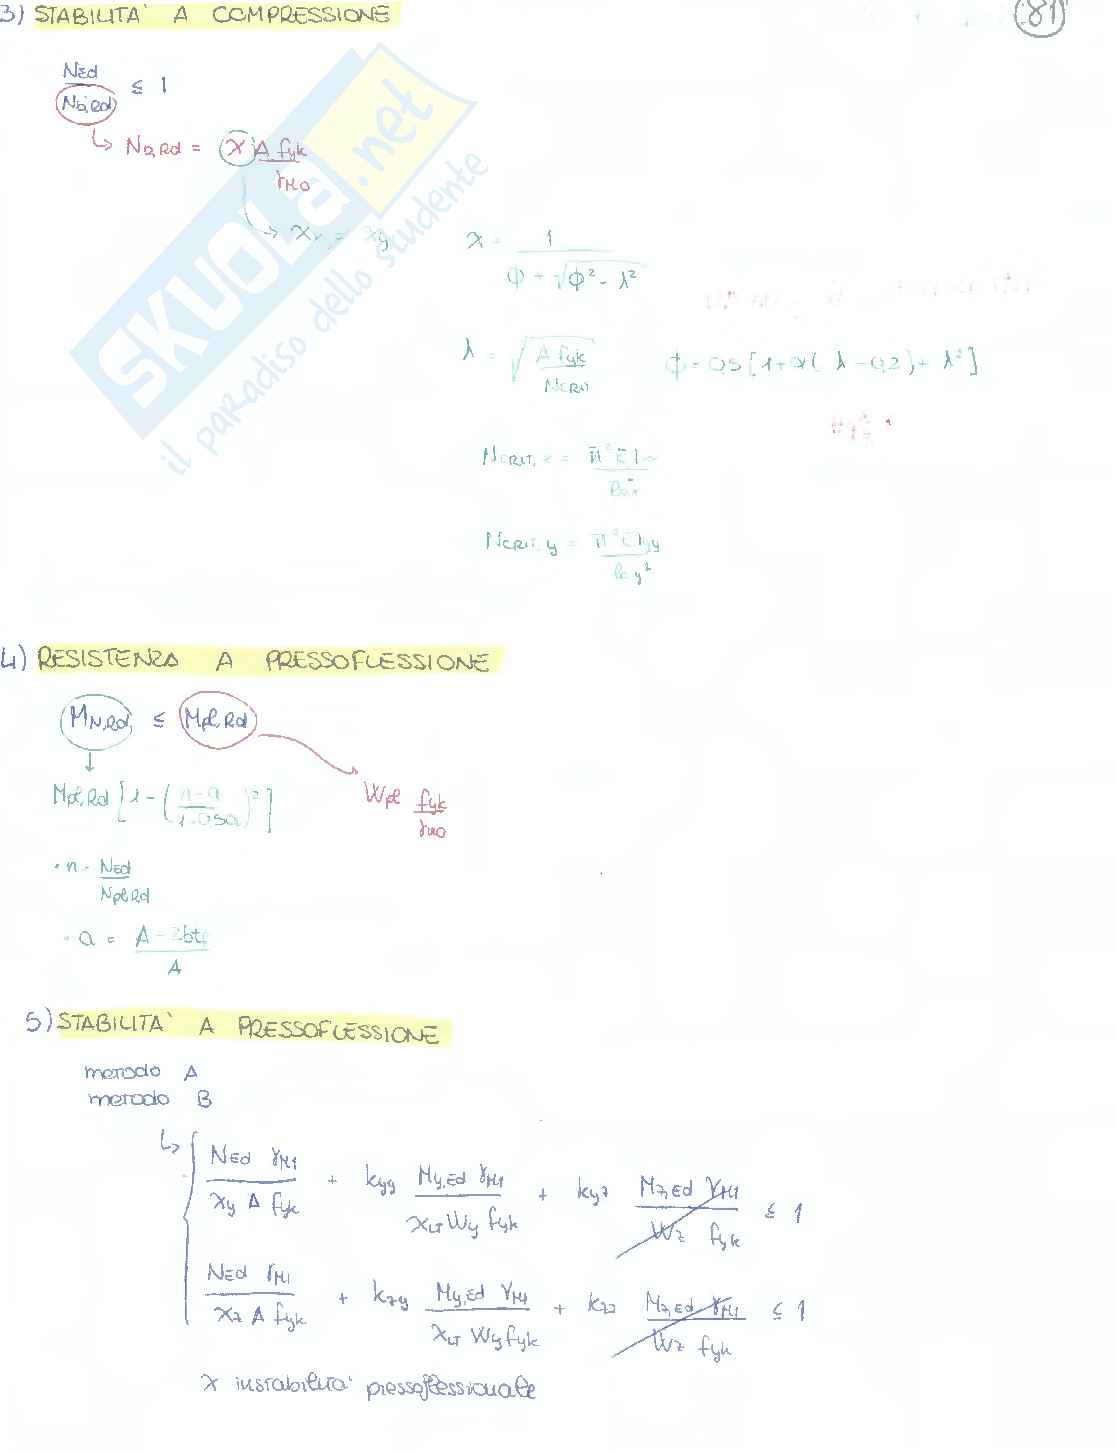 3) STABILITA' A COMPRESSIONE
81
NEd / Nb,Rd ≤ 1
↳ Nb,Rd = χ A fyk / γM0
χ = 1 / (Φ + √(Φ² - λ²))
λ = √(A fyk / NCRIT)
Φ = 0,5 [1 + α(λ - 0,2) + λ²]
NCRIT, y = π² E Iyy / l0y²
4) RESISTENZA A PRESSOFLESSIONE
MN,Rd ≤ Mpl,Rd
Mpl,Rd [1 - ((n - a) / (1 - 0.5a))²]
Wpl fyk / γM0
• n = NEd / Npl,Rd
• a = (A - 2btf) / A
5) STABILITA' A PRESSOFLESSIONE
metodo A
metodo B
↳ { NEd γM1 / χy A fyk + kyy My,Ed γM1 / χLT Wy fyk + kyz Mz,Ed γM1 / Wz fyk ≤ 1
NEd γM1 / χz A fyk + kzy My,Ed γM1 / χLT Wy fyk + kzz Mz,Ed γM1 / Wz fyk ≤ 1
χ instabilità pressoflessionale
SKUOLA.net
il paradiso dello studente